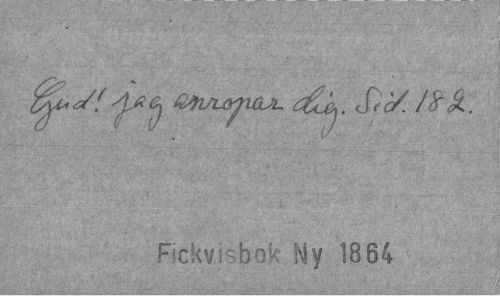 Gud! jag anropar dig. Sid. 182.
Fickvisbok Ny 1864